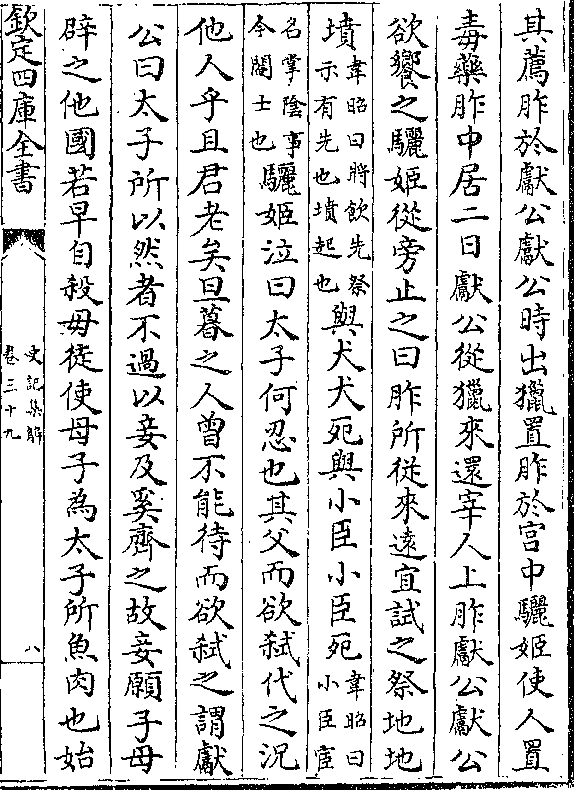 其薦胙於獻公獻公時出獵置胙於宫中驪姬使人置
毒藥胙中居二日獻公從獵來還宰人上胙獻公獻公
欲饗之驪姬從旁止之曰胙所從來逺宜試之祭地地
墳韋昭曰將飲先祭示有先也墳起也與犬犬死與小臣小臣死韋昭曰小臣宦
名掌陰事今閹士也驪姬泣曰太子何忍也其父而欲弑代之况
他人乎且君老矣旦暮之人曾不能待而欲弑之謂獻
公曰太子所以然者不過以妾及奚齊之故妾願子母
辟之他國若早自殺毋徒使母子為太子所魚肉也始
欽定四庫全書
史記集解
卷三十九
八